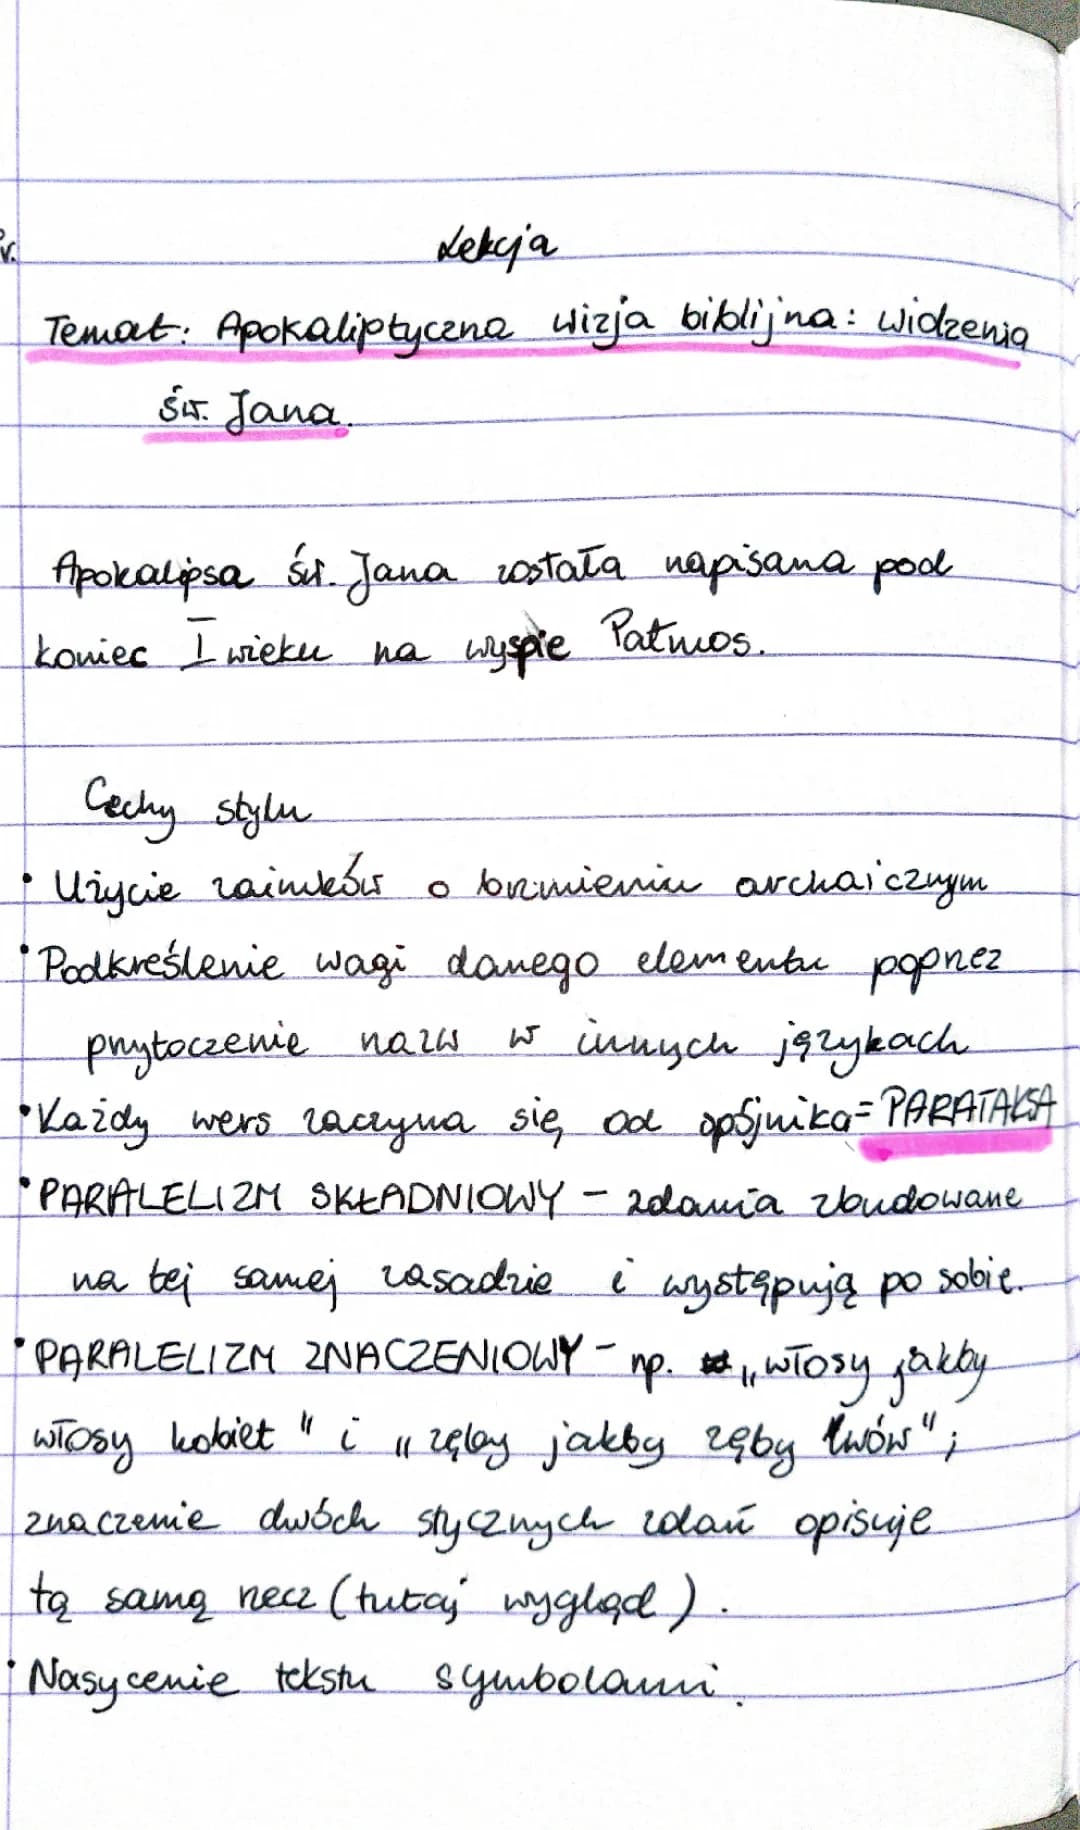 Lekcja
Temat: Apokaliptyczna wizja biblijna: widzenia
św. Jana.
Apokalipsa św. Jana została napisana pod
koniec I wieku na wyspie Patmos.
Cechy stylu
• Użycie zaimków o brzmieniu archaicznym
• Podkreślenie wagi danego elementu poprzez
przytoczenie nazw w innych językach
• Każdy wers zaczyna się od spójnika = PARATAKSA
• PARALELIZM SKŁADNIOWY – zdania zbudowane
na tej samej zasadzie i występują po sobie.
• PARALELIZM ZNACZENIOWY – np. „włosy jakby
włosy kobiet" i „zęby jakby zęby lwów";
znaczenie dwóch stycznych zdań opisuje
tą samą rzecz (tutaj wygląd).
• Nasycenie tekstu symbolami.